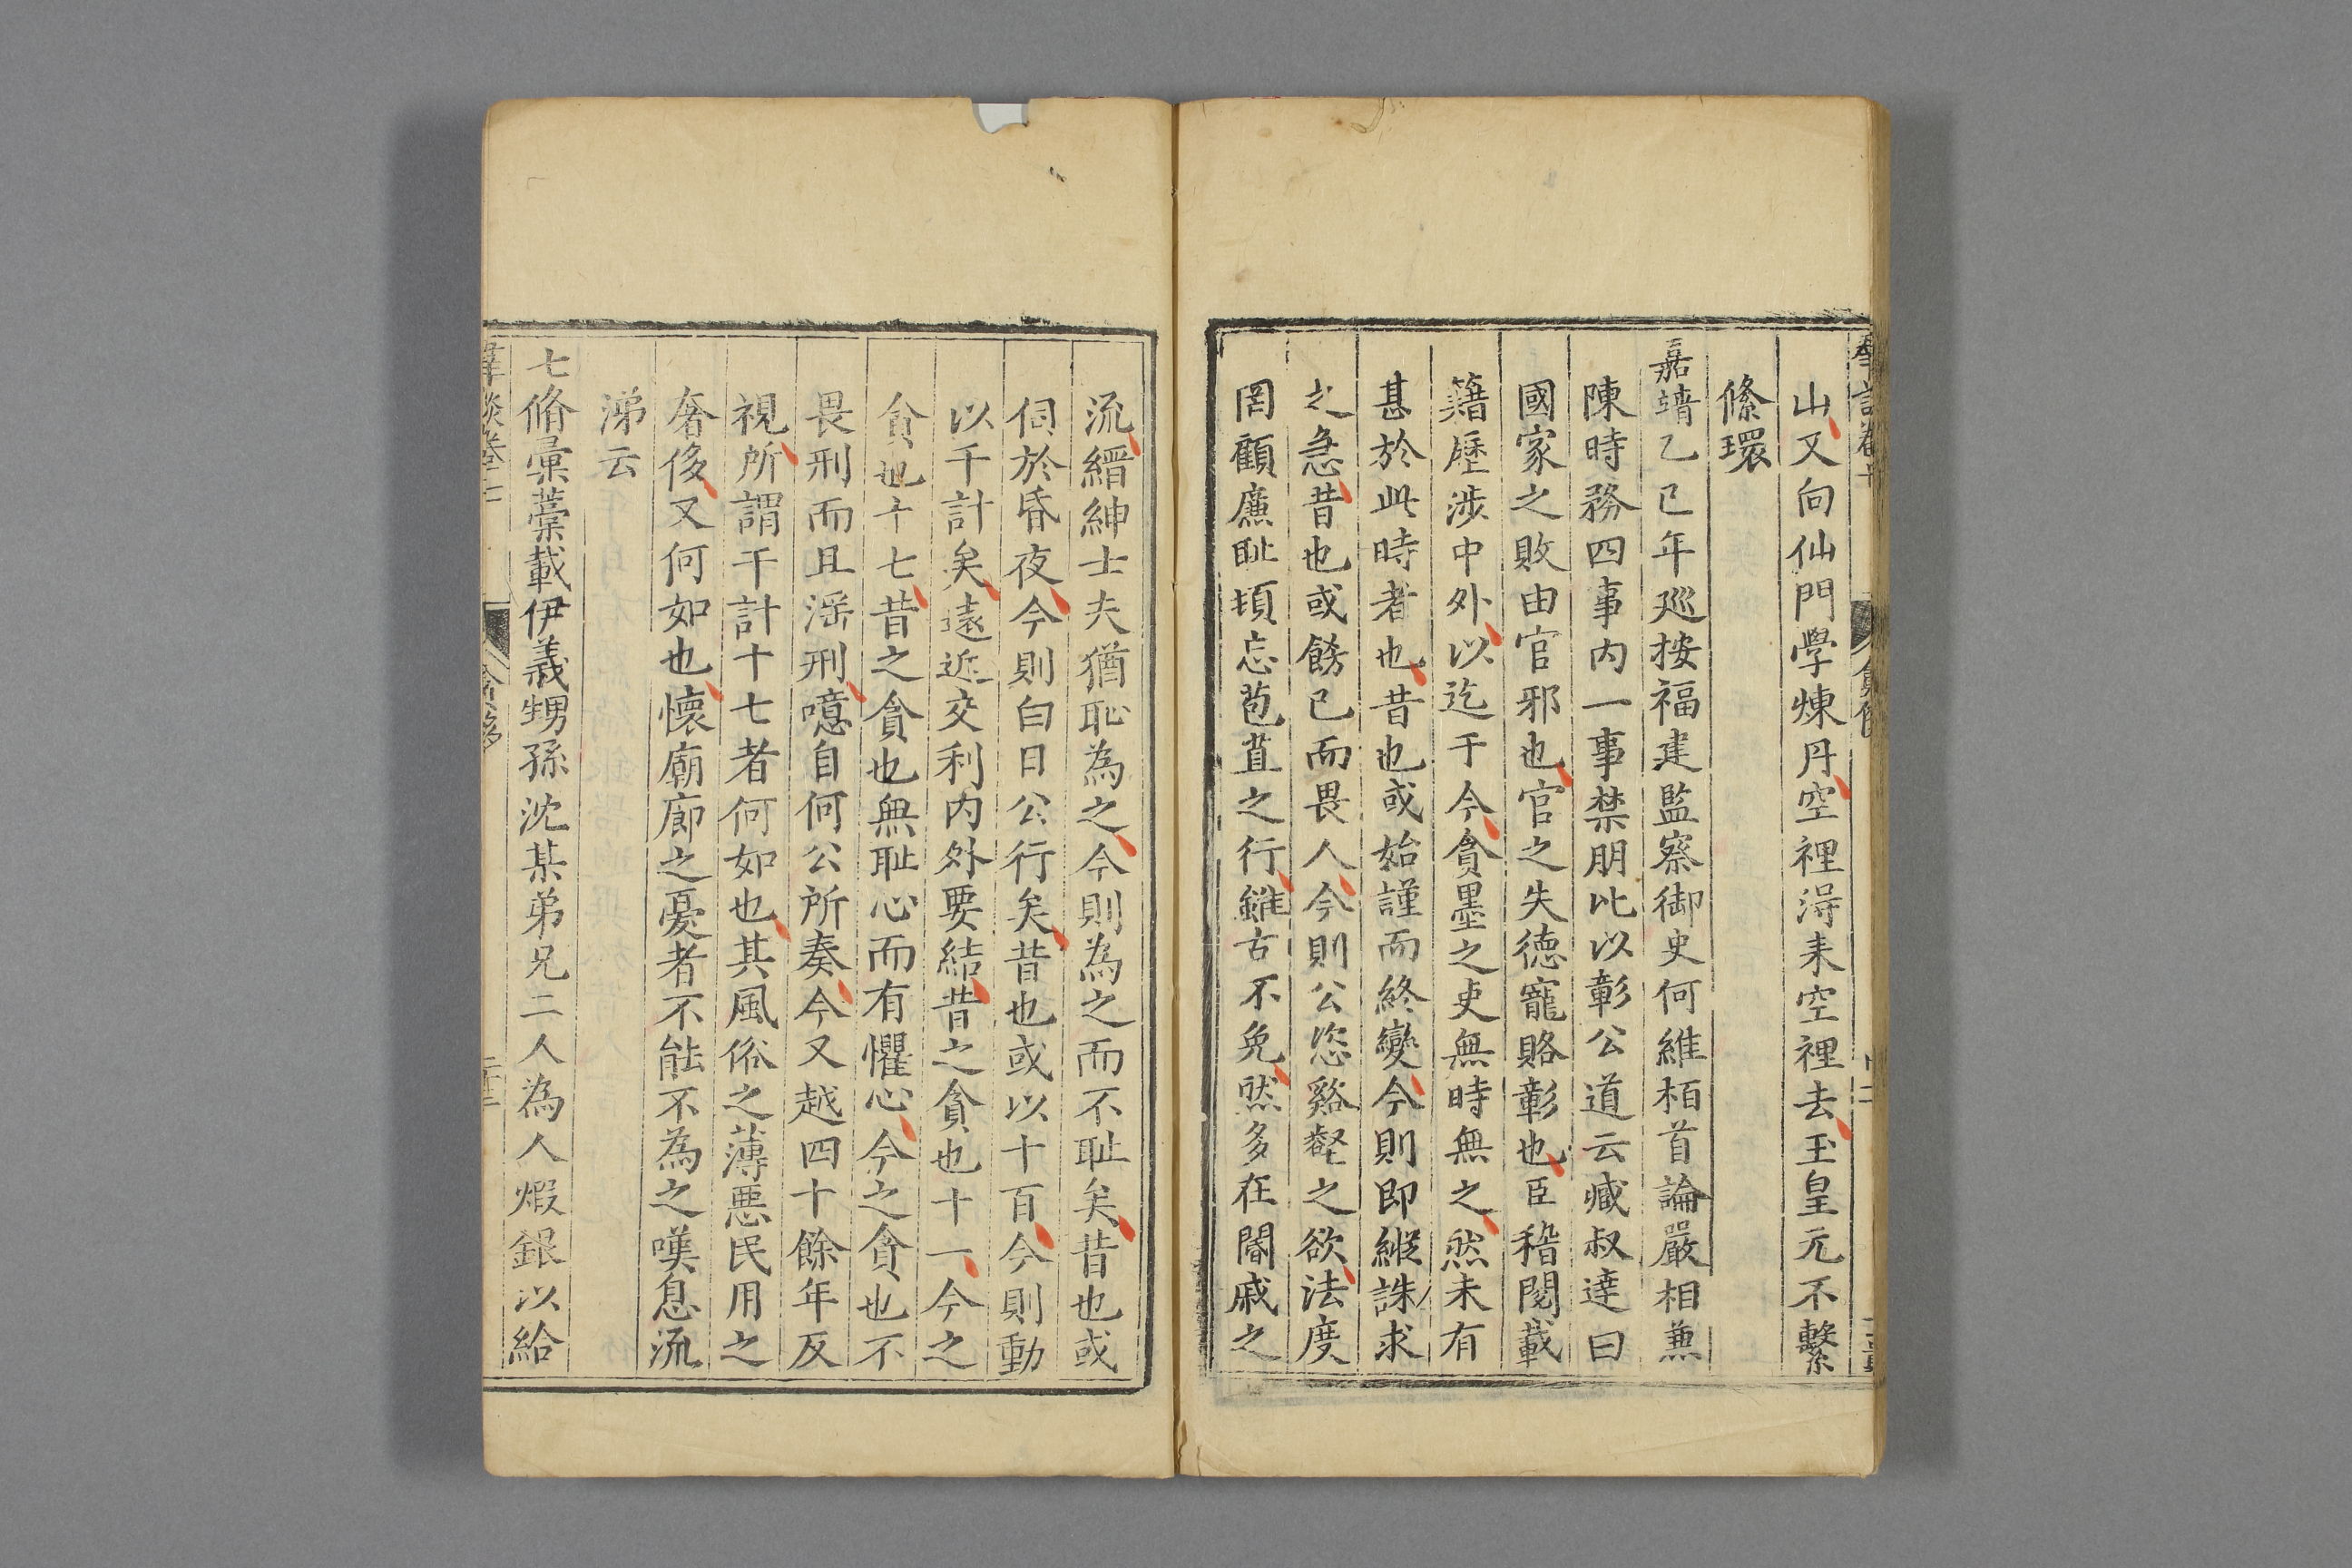 山又向仙門學煉丹空裡淂来空裡去玉皇元不繫
絛環
嘉靖乙巳年廵按福建監察御史何維栢首論嚴相兼
陳時務四事内一事禁朋比以彰公道云臧叔達曰
國家之敗由官邪也官之失徳寵賂彰也臣稽閱載
籍歷涉中外以迄于今貪墨之吏無時無之然未有
甚於此時者也昔也或始謹而終變今則即縱誅求
之急昔也或餙已而畏人今則公恣谿壑之欲法度
罔顧廉耻頓忘苞苴之行雖古不免然多在閽戚之
流縉紳士夫猶恥為之今則為之而不耻矣昔也或
伺於昏夜今則白日公行矣昔也或以十百今則動
以千計矣遠近交利内外要結昔之貪也十一今之
貪也十七昔之貪也無耻心而有懼心今之貪也不
畏刑而且滛刑噫自何公所奏今又越四十餘年反
視所謂千計十七者何如也其風俗之薄悪民用之
奢侈又何如也懷廟廊之憂者不能不為之嘆息流
涕云
七脩彙藁載伊義甥孫沈某弟兄二人為人煆銀以給